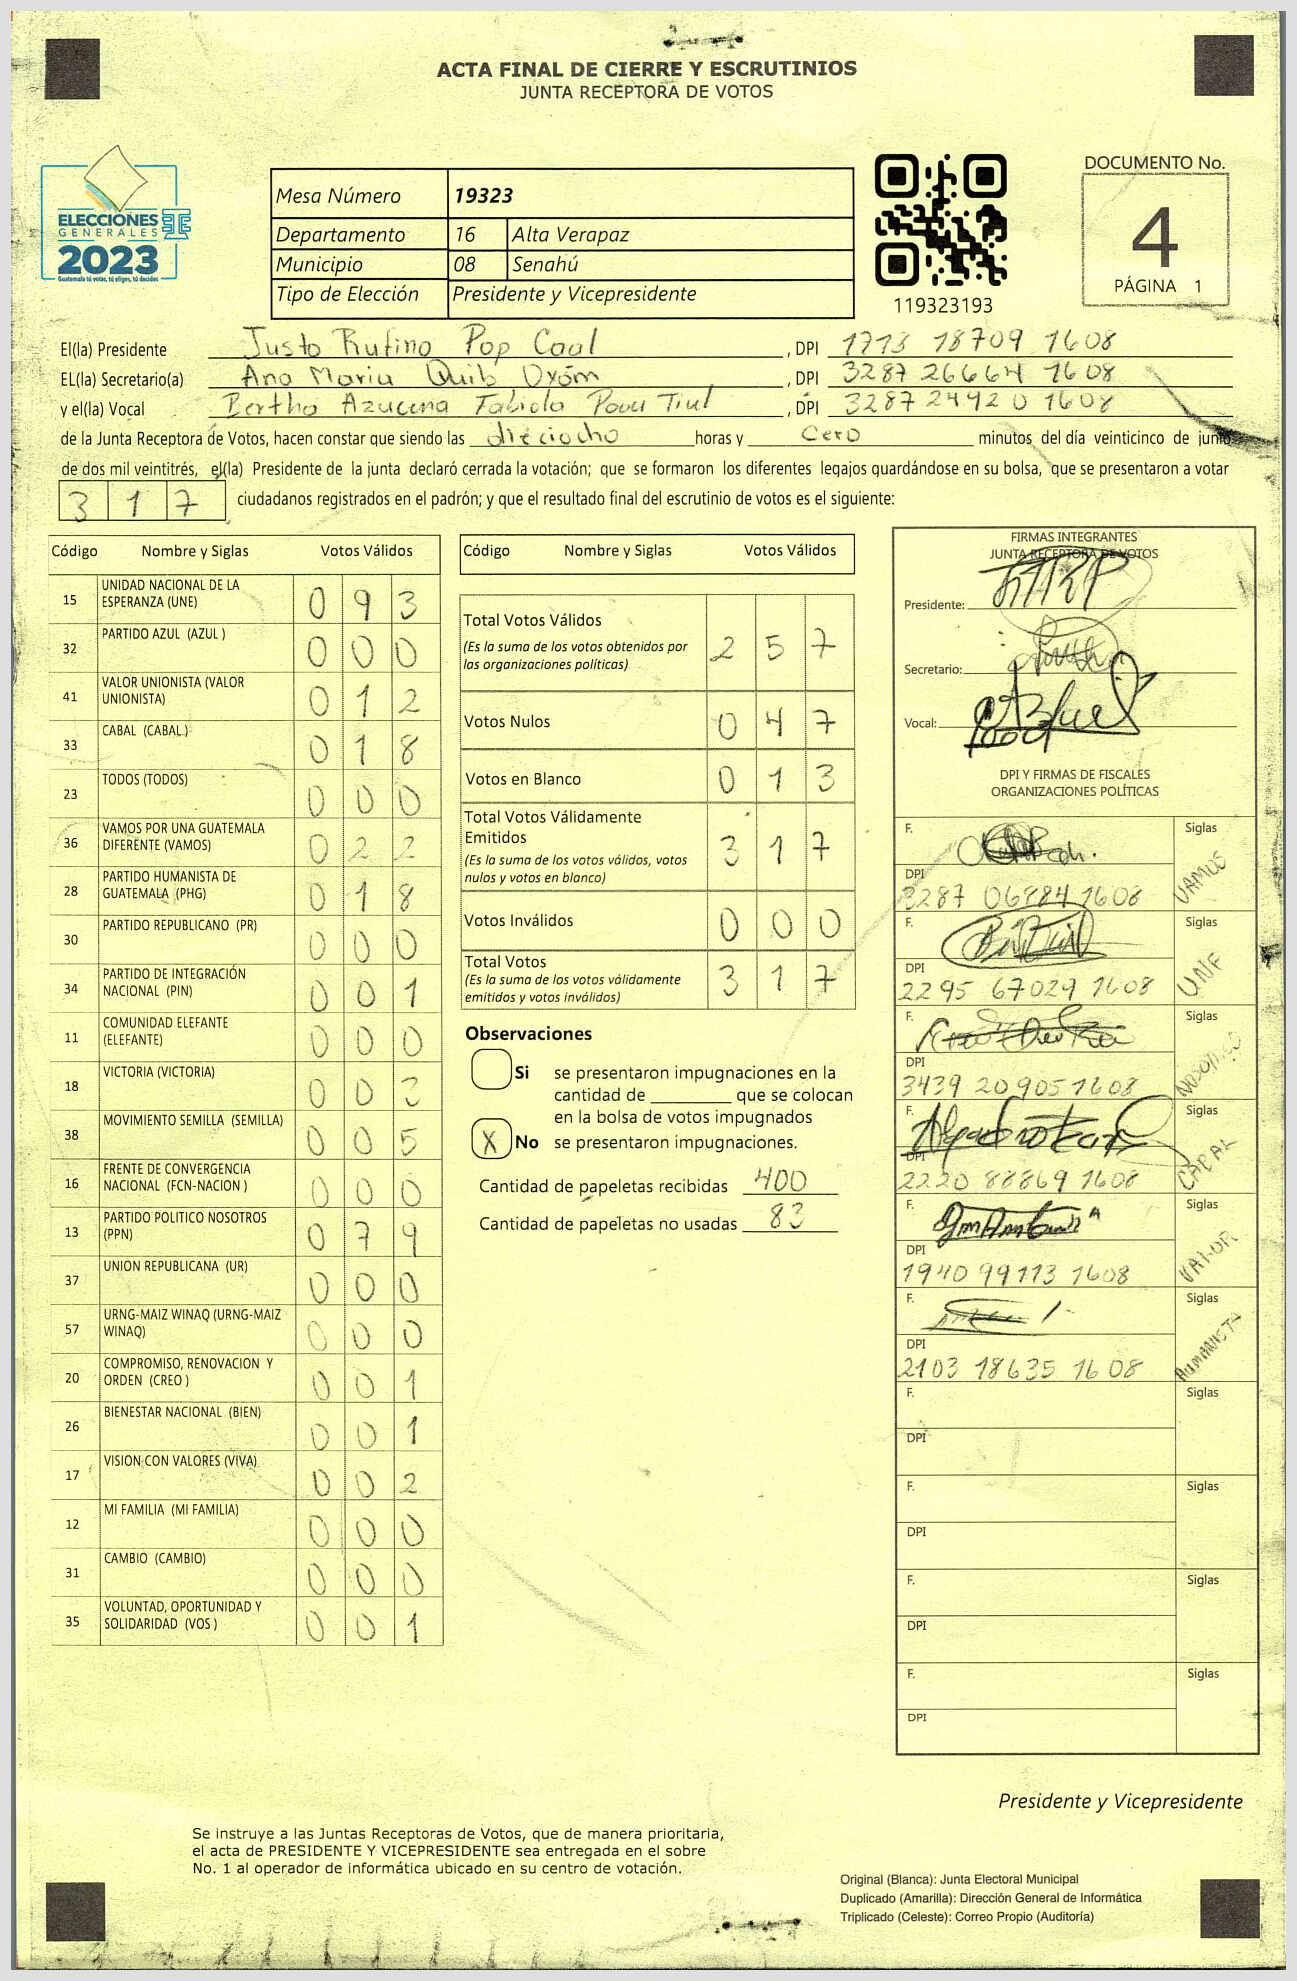 ACTA FINAL DE CIERRE Y ESCRUTINIOS
JUNTA RECEPTORA DE VOTOS
ELECCIONES
GENERALES
2023
Guatemala tú votas, tú eliges, tú decides
Mesa Número 19323
Departamento 16 Alta Verapaz
Municipio 08 Senahú
Tipo de Elección Presidente y Vicepresidente
119323193
DOCUMENTO No.
4
PÁGINA 1
El(la) Presidente Justo Rufino Pop Caal , DPI 1713 18709 1608
EL(la) Secretario(a) Ana Maria Quib Oxóm , DPI 3287 26664 1608
y el(la) Vocal Bertha Azucena Fabiola Tiul , DPI 3287 24920 1608
de la Junta Receptora de Votos, hacen constar que siendo las dieciocho horas y cero minutos del día veinticinco de junio
de dos mil veintitrés, el(la) Presidente de la junta declaró cerrada la votación; que se formaron los diferentes legajos guardándose en su bolsa, que se presentaron a votar
3 1 7 ciudadanos registrados en el padrón; y que el resultado final del escrutinio de votos es el siguiente:
Código Nombre y Siglas Votos Válidos
15 UNIDAD NACIONAL DE LA ESPERANZA (UNE) 0 9 3
32 PARTIDO AZUL (AZUL ) 0 0 0
41 VALOR UNIONISTA (VALOR UNIONISTA) 0 1 2
33 CABAL (CABAL ) 0 1 8
23 TODOS (TODOS) 0 0 0
36 VAMOS POR UNA GUATEMALA DIFERENTE (VAMOS) 0 2 2
28 PARTIDO HUMANISTA DE GUATEMALA (PHG) 0 1 8
30 PARTIDO REPUBLICANO (PR) 0 0 0
34 PARTIDO DE INTEGRACIÓN NACIONAL (PIN) 0 0 1
11 COMUNIDAD ELEFANTE (ELEFANTE) 0 0 0
18 VICTORIA (VICTORIA) 0 0
38 MOVIMIENTO SEMILLA (SEMILLA) 0 0 5
16 FRENTE DE CONVERGENCIA NACIONAL (FCN-NACION ) 0 0 0
13 PARTIDO POLITICO NOSOTROS (PPN) 0 7 9
37 UNION REPUBLICANA (UR) 0 0 0
57 URNG-MAIZ WINAQ (URNG-MAIZ WINAQ) 0 0 0
20 COMPROMISO, RENOVACION Y ORDEN (CREO ) 0 0 1
26 BIENESTAR NACIONAL (BIEN) 0 0 1
17 VISION CON VALORES (VIVA) 0 0 2
12 MI FAMILIA (MI FAMILIA) 0 0 0
31 CAMBIO (CAMBIO) 0 0 0
35 VOLUNTAD, OPORTUNIDAD Y SOLIDARIDAD (VOS ) 0 0 1
Código Nombre y Siglas Votos Válidos
Total Votos Válidos 2 5 7
(Es la suma de los votos obtenidos por las organizaciones políticas)
Votos Nulos 0 4 7
Votos en Blanco 0 1 3
Total Votos Válidamente Emitidos 3 1 7
(Es la suma de los votos válidos, votos nulos y votos en blanco)
Votos Inválidos 0 0 0
Total Votos 3 1 7
(Es la suma de los votos válidamente emitidos y votos inválidos)
Observaciones
Si se presentaron impugnaciones en la
cantidad de ________ que se colocan
en la bolsa de votos impugnados
X No se presentaron impugnaciones.
Cantidad de papeletas recibidas 400
Cantidad de papeletas no usadas 83
FIRMAS INTEGRANTES
JUNTA RECEPTORA DE VOTOS
Presidente:
Secretario:
Vocal:
DPI Y FIRMAS DE FISCALES
ORGANIZACIONES POLÍTICAS
F. Siglas VAMOS
DPI 3287 06884 1608
F. Siglas UNE
DPI 2295 67029 1608
F. Siglas NOSOTROS
DPI 3439 20905 1608
F. Siglas CABAL
DPI 2220 88869 1608
F. Siglas VALOR
DPI 1940 99113 1608
F. Siglas HUMANISTA
DPI 2103 18635 1608
F. Siglas
DPI
F. Siglas
DPI
F. Siglas
DPI
F. Siglas
DPI
Presidente y Vicepresidente
Se instruye a las Juntas Receptoras de Votos, que de manera prioritaria,
el acta de PRESIDENTE Y VICEPRESIDENTE sea entregada en el sobre
No. 1 al operador de informática ubicado en su centro de votación.
Original (Blanca): Junta Electoral Municipal
Duplicado (Amarilla): Dirección General de Informática
Triplicado (Celeste): Correo Propio (Auditoría)